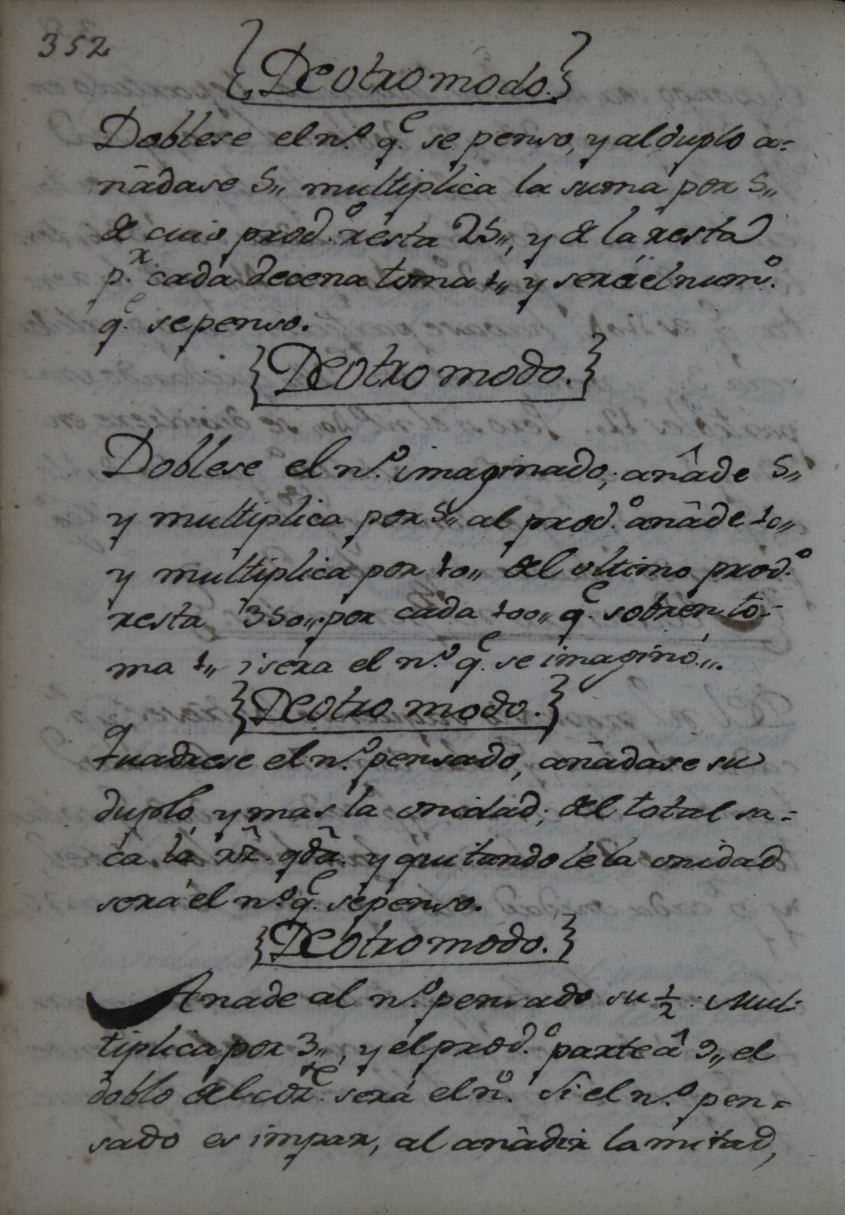 352
{De otro modo.}
Doblese el n.º q.e se penso, y al duplo a=
ñadase 5,, multiplica la suma por 5,,
de cuio prod.º resta 25,, y de la resta
p.r cada decena toma 1,, y será el num.º
q.e se penso.
{De otro modo.}
Doblese el n.º imaginado; añade 5,,
y multiplica por 5,, al prod.º añade 10,,
y multiplica por 10,, del ultimo prod.º
resta 350,, por cada 100,, q.e sobren, to-
ma 1,, i sera el n.º q.e se imaginó,,.
{De otro modo.}
quadrese el n.º pensado, añadase su
duplo y mas la unidad; del total sa=
ca la rz. qda. y quitandole la unidad
será el n.º q.e se penso.
{De otro modo.}
Añade al n.º pensado su 1/2. Mul-
tiplica por 3,, y el prod.º parte â 9,, el
doblo del será el n.º. Si el n.º pen=
sado es impar, al añadir la mitad,